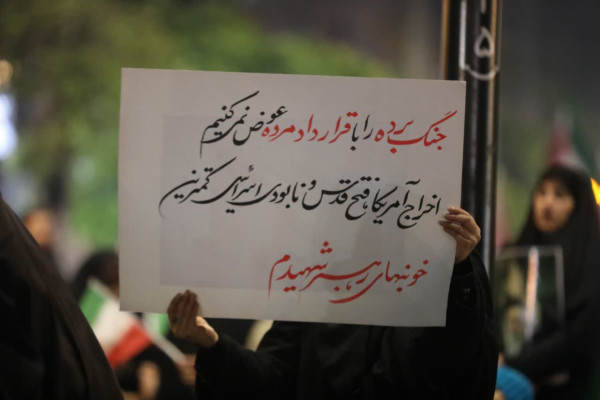 جنگ برده را با قرارداد مرده عوض نمی‌کنیم
اخراج آمریکا، فتح قدس و نابودی اسرائیل کمترین
خونبهای رهبر شهیدم
۱۵